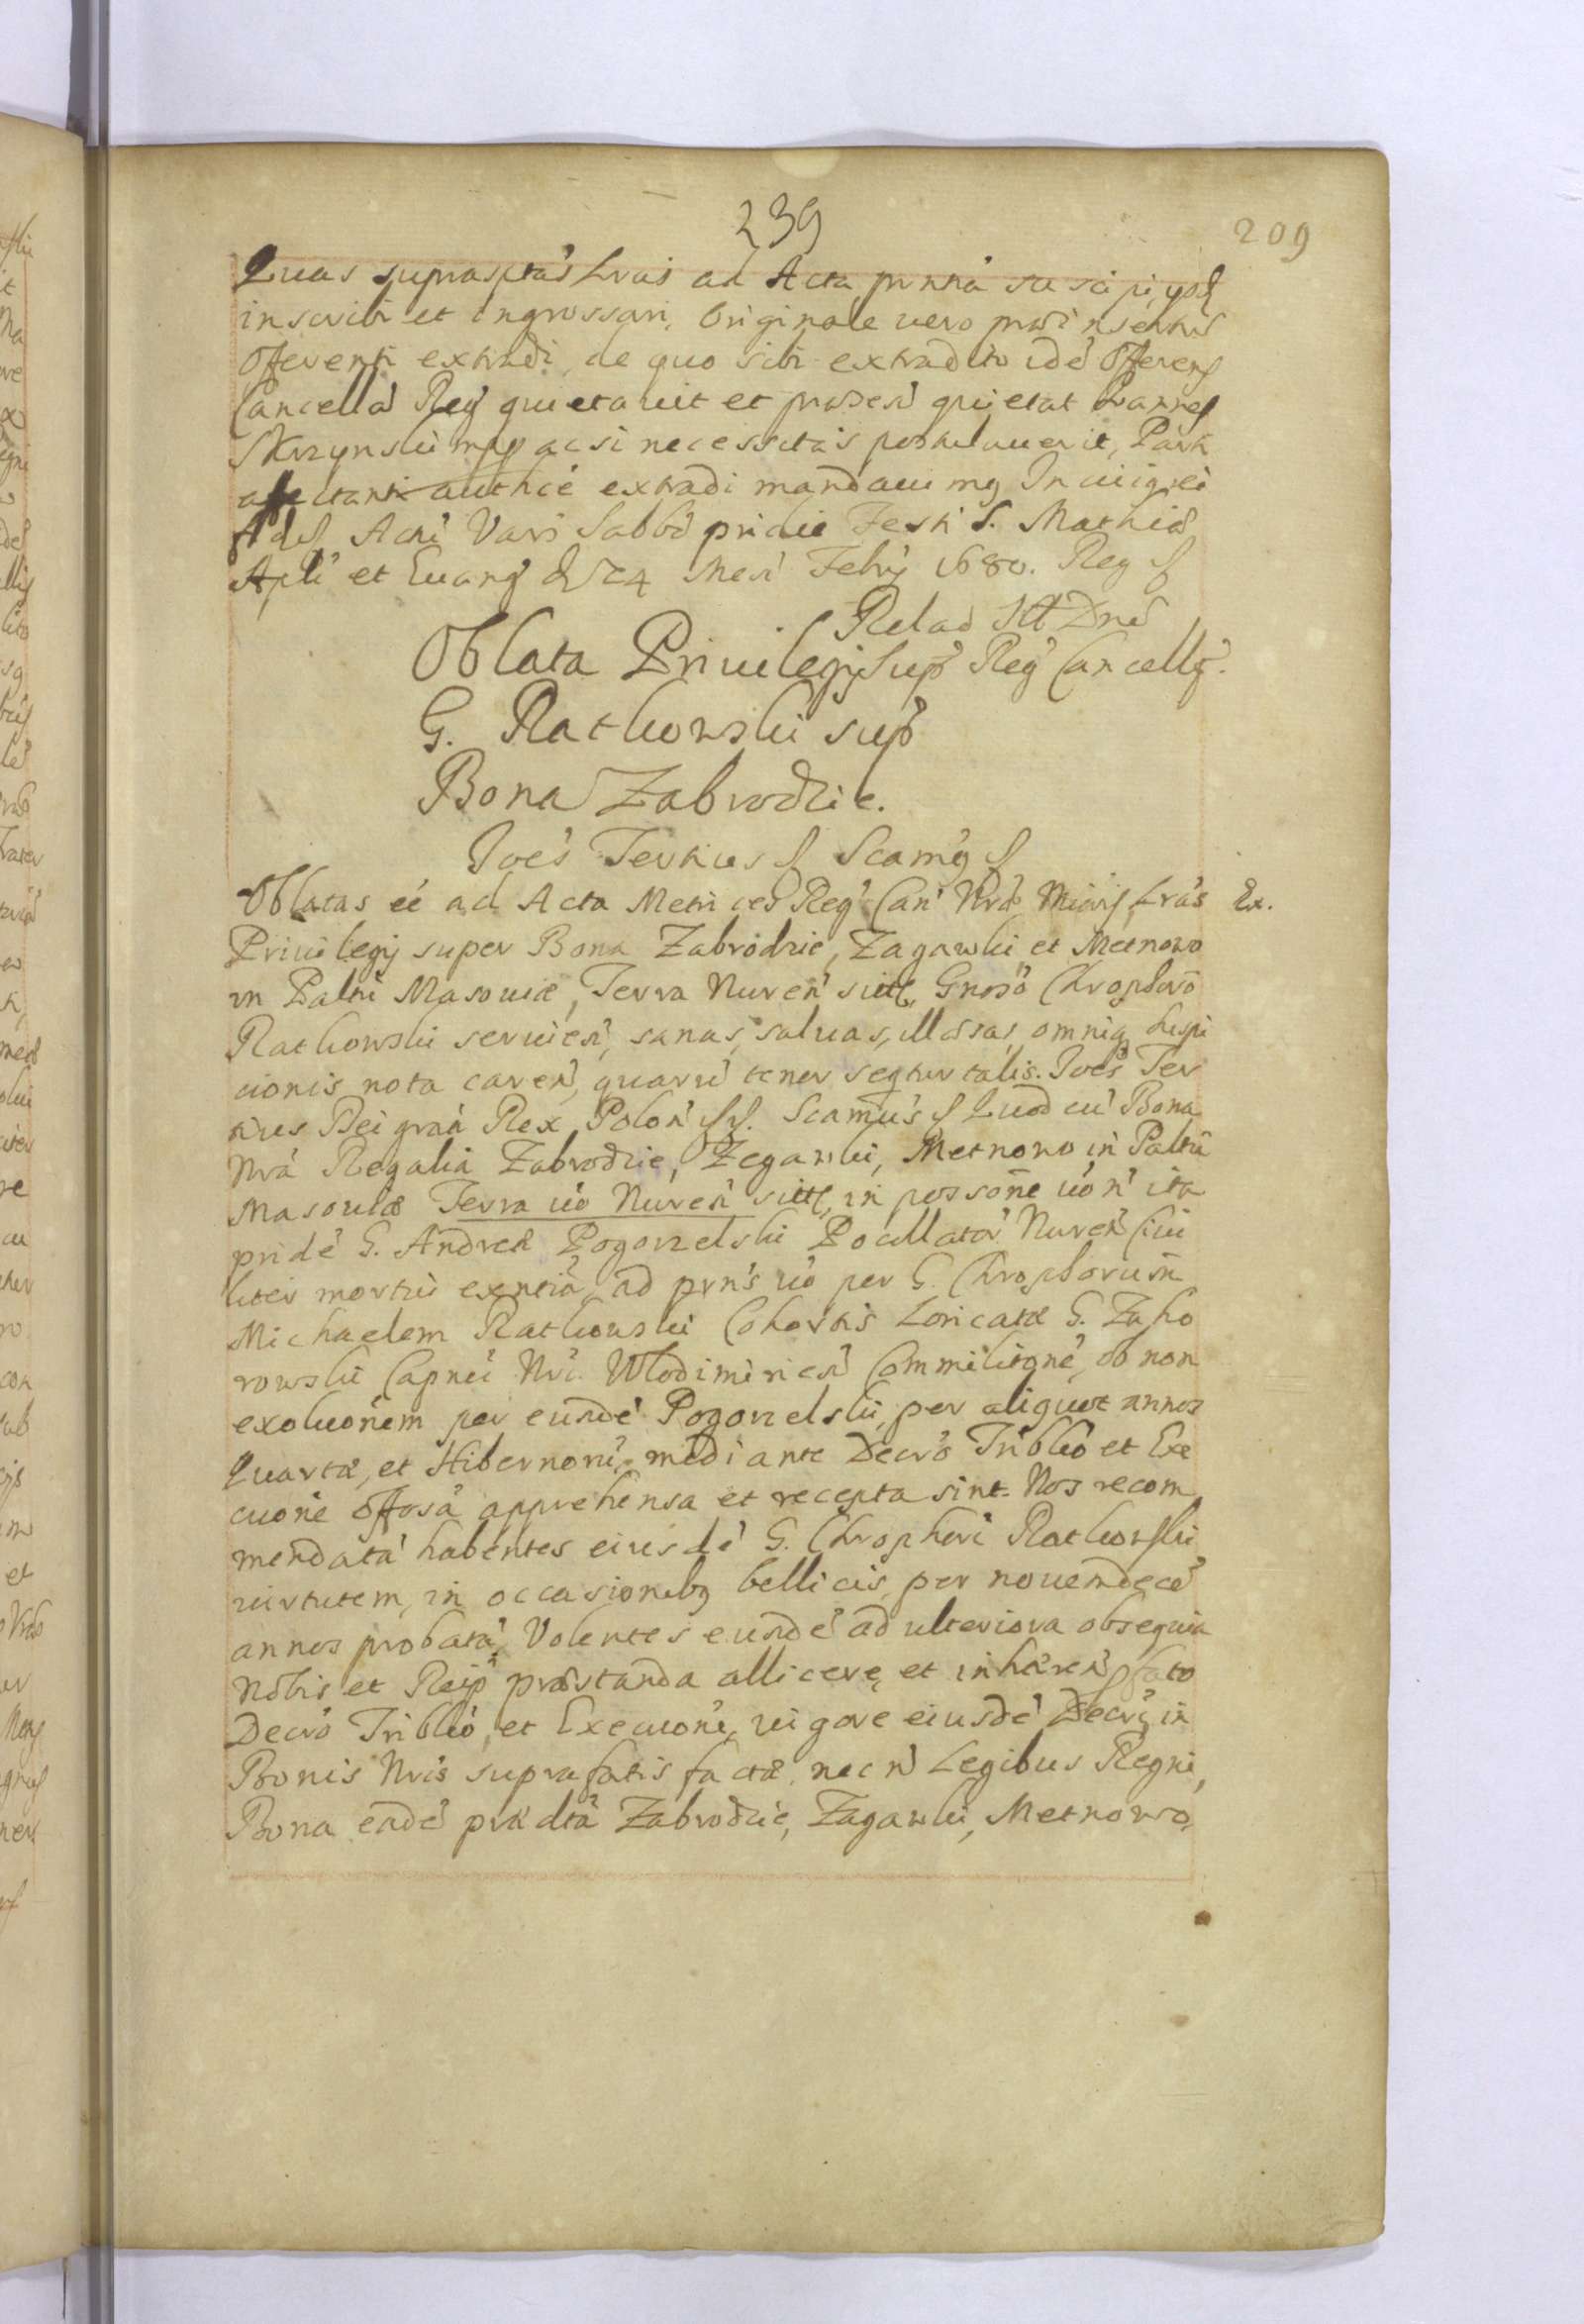 239
209
Quas suprasptas Lras ad Acta pnntia suscipi, ypsq
inscribi et ingrossari, Originale uero
Offerenti extradi, de quo sibi extradito idé Offerens
Cancellá Reg quietauit et quietat
Skrzynski mpp ac si necessitas postulauerit, Parti
affectanti authcé extradi mandauimg In cuig rei
fidef Act Vars Sabbo pridie Festi S. Mathiæ
Apli et Euang d. 24 Mesi Febrij 1680. Reg
Relao Dni
Oblata Privilegij Sup Reg Cancell
G. Ratkowski sup
Bona Zabrodzie.
Joes Tertius Scamg
Oblatas eé ad Acta Metrices Reg Can Nræ Lras Ex.
Priuilegij super Bona Zabródzie, Zagawki et Metnowo
in Paltu Masouiæ, Terra Nuren sitt, Gnoso Chrophoro
Ratkowski seruien, sanas, saluas, illæsas, omnig suspi
cionis nota caren, quaru tenor segtur talis. Joes Ter
tius Dei graá Rex Polon Scamus Quod cu Bona
Nrá Regalia Zabrodzie, Zegawki, Metnowo in Paltu
Masouiæ Terra uo Nuren sitt, in possone uo n ita
pridé G. Andreæ Pogorzelski Pocillator Nuren Ciui
liter mortui exntia, ad prn's uo per G. Chrophorum
Michaelem Ratkowski Cohortis Loricatæ G. Zaho
rowski Capnei Nri Wlodimirien Commilitoné, ob non
exoluonem per eundé Pogorzelski, per aliquot annos
Quartæ, et Hibernorú, mediante Decro Tribli et Exe
cuone offosa apprehensa et recepta sint. Nos recom
mendatá habentes eiusdé G. Chrophori Ratkowski
uirtutem, in occasionibg bellicis, per nouemdecé
annos probatá, Volentes eundé ad ulteriora obsequia
Nobis et Reip præstanda allicere, et inhæren pfato
Decro Triblio, et Execuoni, uigore eiusdé Decri, in
Bonis Nris suprafatis factæ, nec n Legibus Regni,
Bona eadé prædta Zabrodzie, Zagawki, Metnowo,